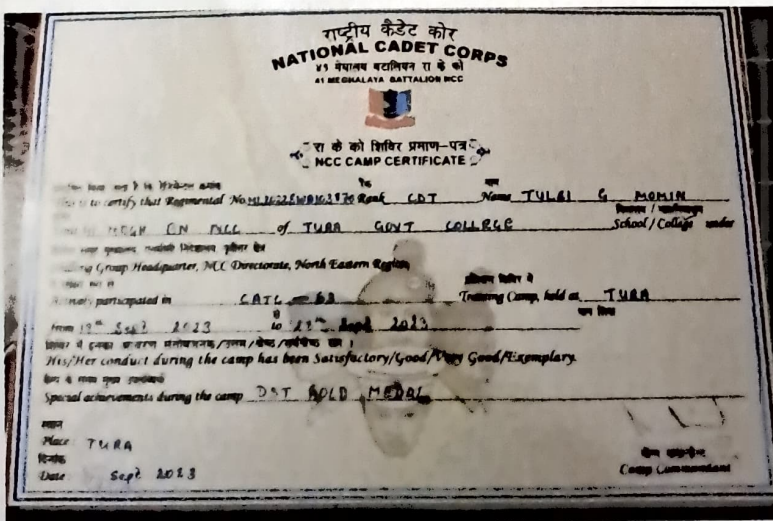 राष्ट्रीय कैडेट कोर
NATIONAL CADET CORPS
४१ मेघालय बटालियन रा के को
41 MEGHALAYA BATTALION NCC
रा के को शिविर प्रमाण-पत्र
NCC CAMP CERTIFICATE
रैंक नाम
to certify that Regimental No. Rank CDT Name TULBI G MOMIN
विद्यालय / महाविद्यालय
MEGH BN NCC of TURA GOVT COLLEGE School/College under
Group Headquarter, NCC Directorate, North Eastern Region
प्रशिक्षण शिविर में
participated in CATC - 62 Training Camp, held at TURA
से भाग लिया
from 19th Sept 2023 to Sept 2023
शिविर में इनका आचरण संतोषजनक/उत्तम/श्रेष्ठ/सर्वश्रेष्ठ रहा।
His/Her conduct during the camp has been Satisfactory/Good/Very Good/Exemplary.
Special achievements during the camp DST GOLD MEDAL
स्थान
Place TURA
दिनांक
Date Sept 2023
Camp Commandant